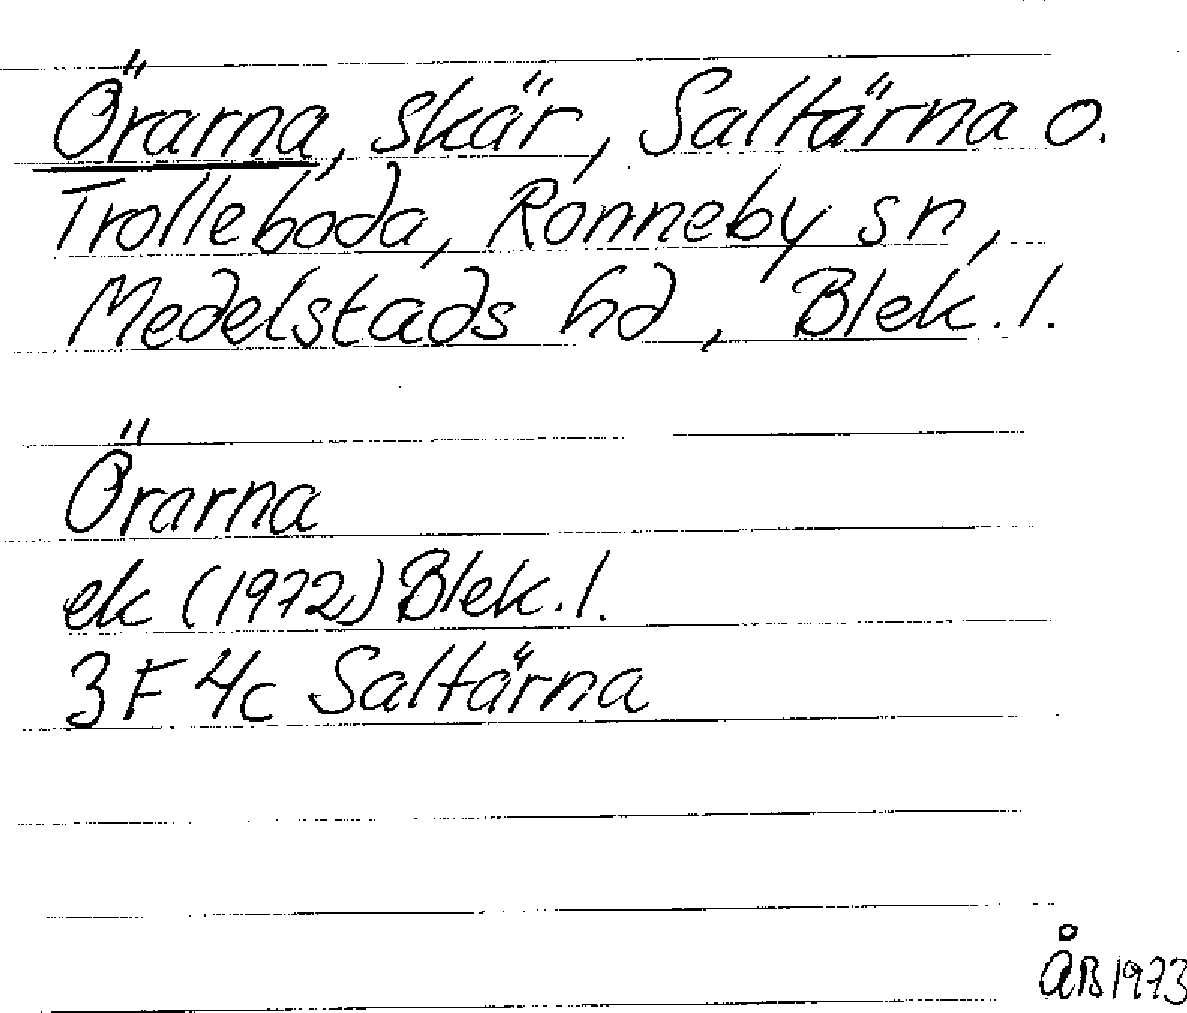 Örarna, skär, Saltärna o.
Trolleboda, Ronneby sn,
Medelstads hd, Blek. l.
Örarna
ek (1972) Blek. l.
3 F 4c Saltärna
ÅB 1973